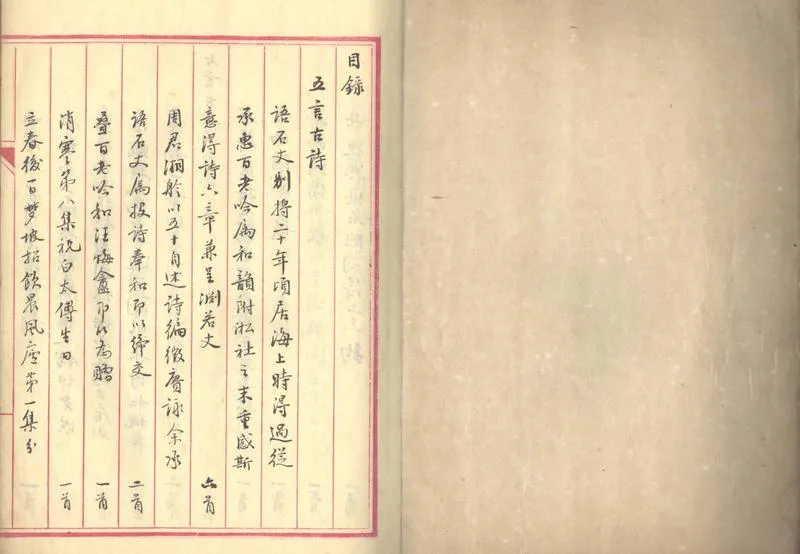 目錄
五言古詩
語石丈別將二十年頃居海上時得過從
承惠百老吟屬和韻附淞社之末重感斯
意得詩六章兼呈淵若丈 六首
周君湘舲以五十自述詩編徵賡詠余承
語石丈屬拔詩奉和即以締交 二首
疊百老吟和汪悔盦即以為贈 一首
消寒第八集祝白太傅生日 一首
立春後一日夢坡招飲晨風廬第一集分